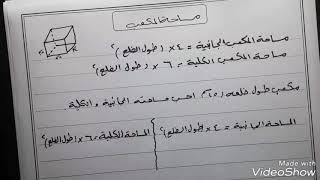 مساحة المكعب
مساحة المكعب الجانبية = ٤ × (طول الضلع)²
مساحة المكعب الكلية = ٦ × (طول الضلع)²
مكعب طول ضلعه احسب مساحته الجانبية والكلية
المساحة الجانبية = ٤ × (طول الضلع)² المساحة الكلية = ٦ × (طول الضلع)²
Made with
VideoShow